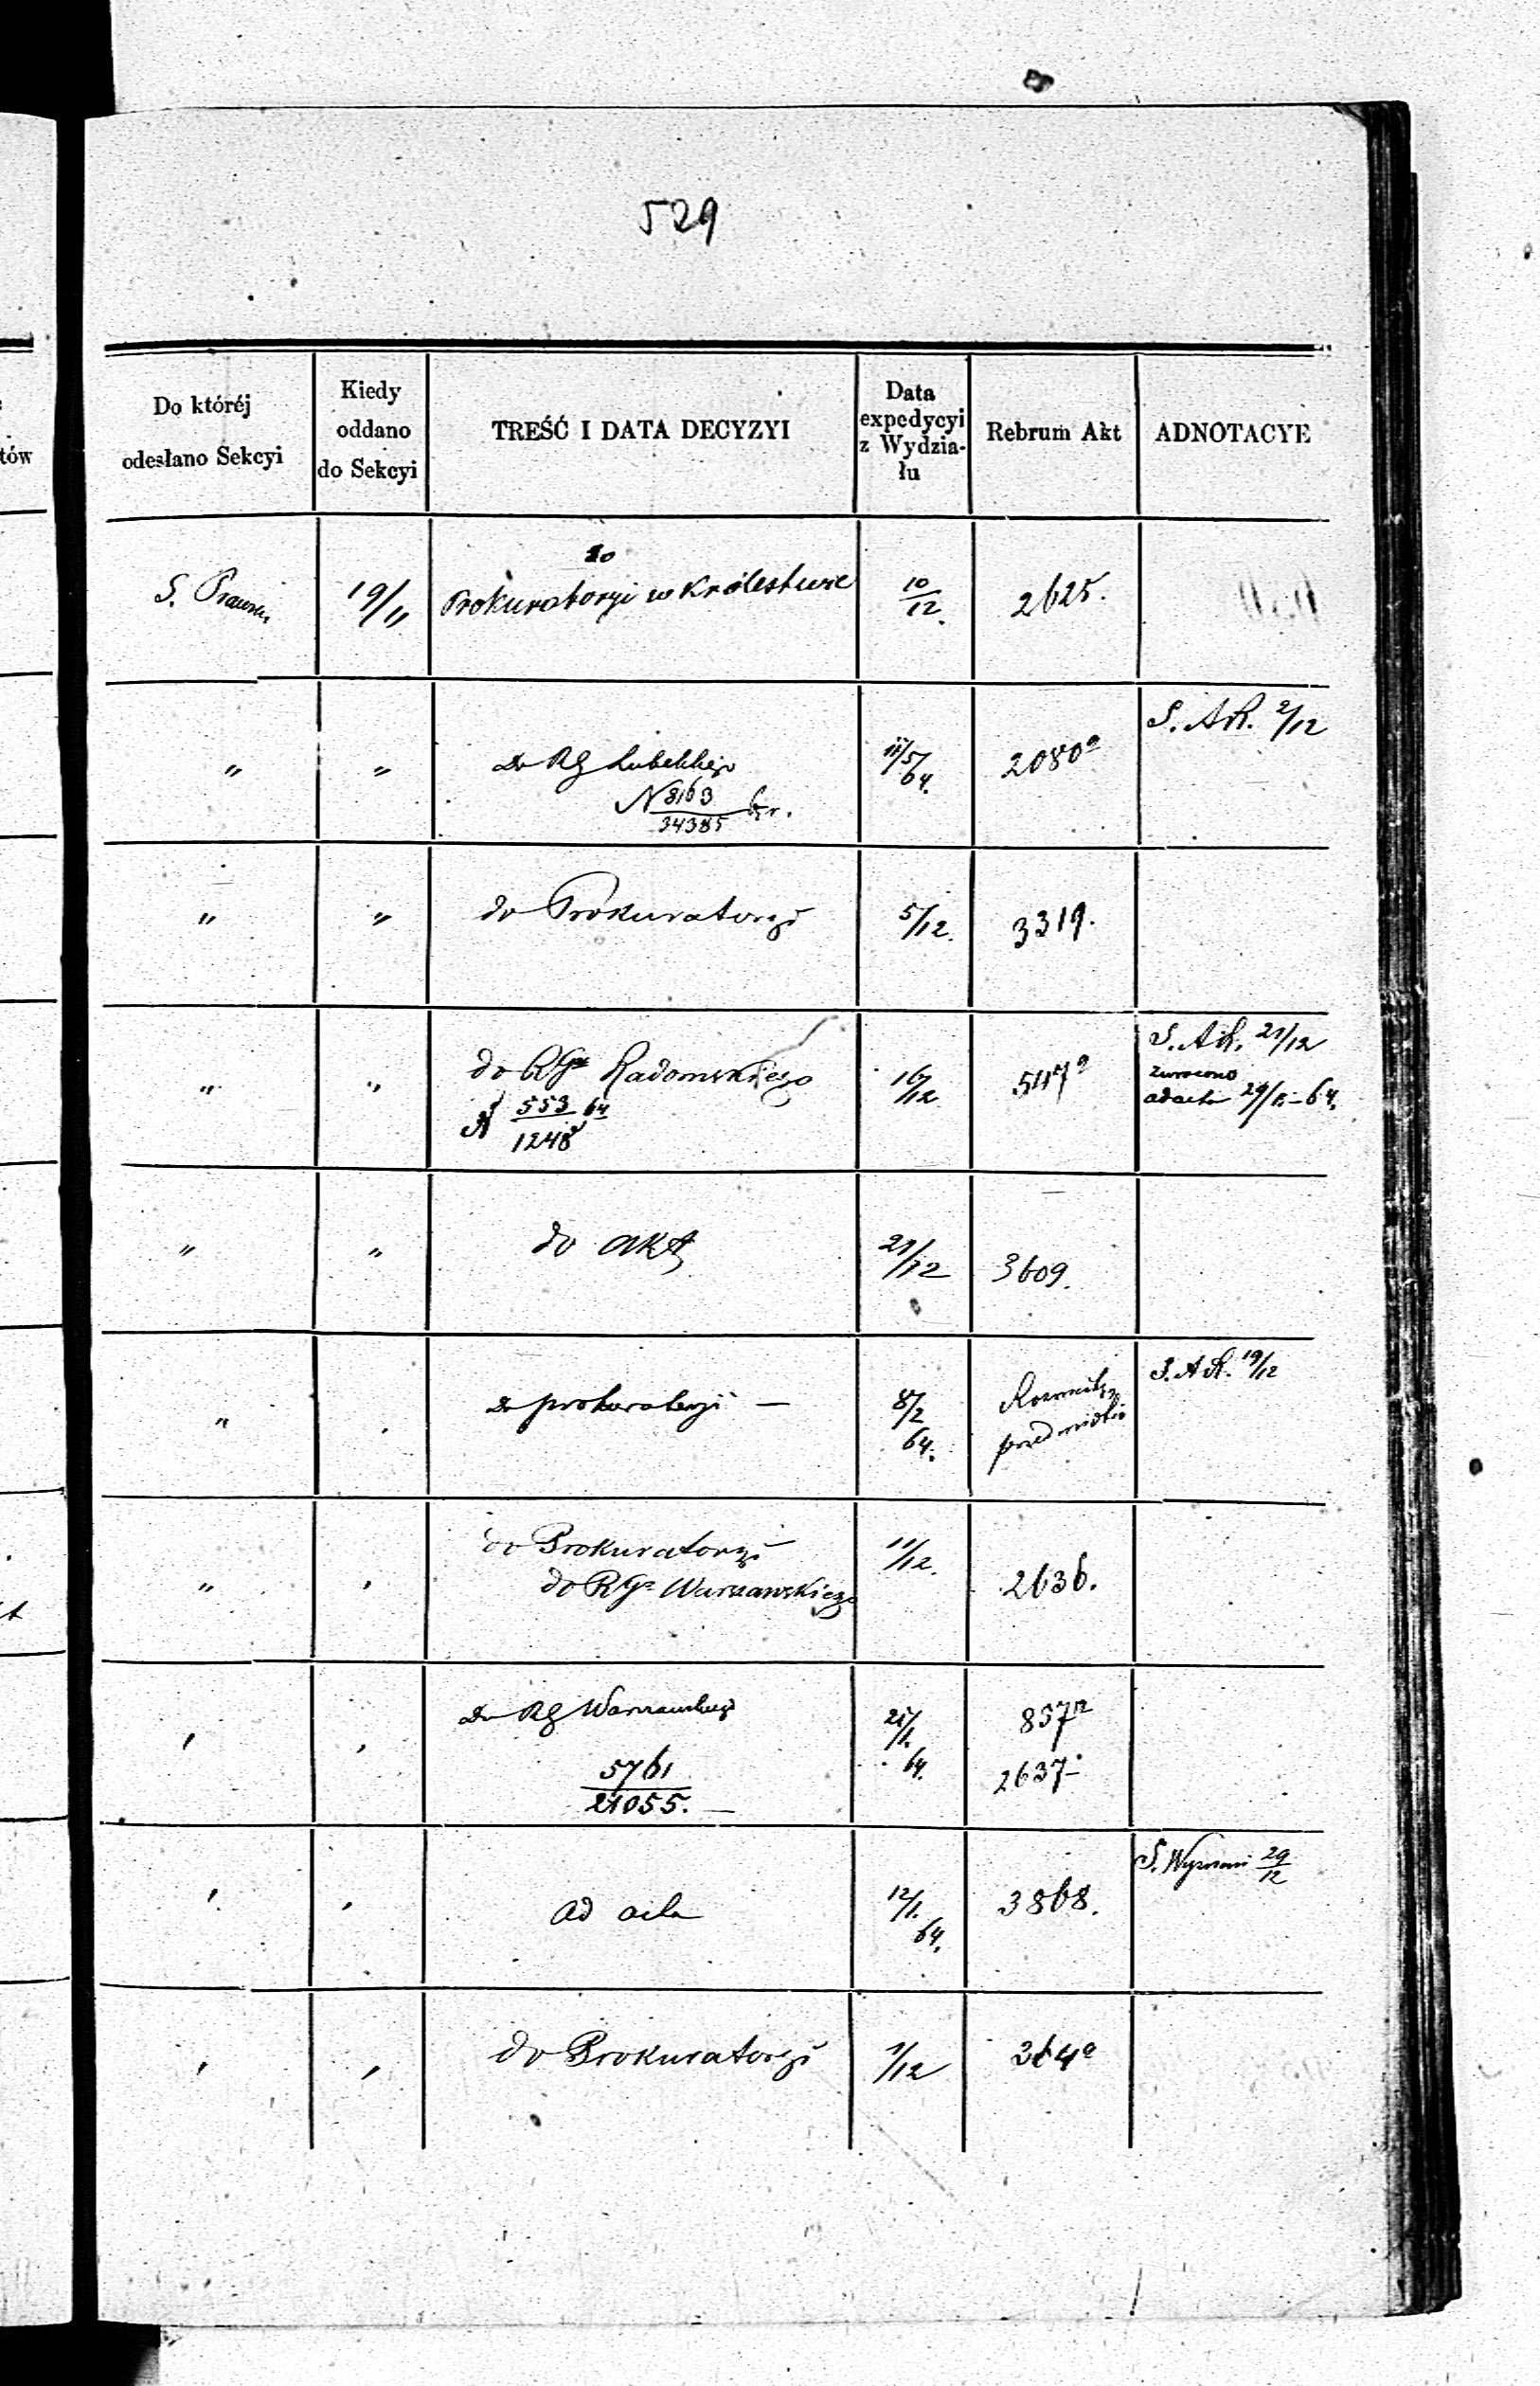 529
Do któréj odesłano Sekcyi | Kiedy oddano do Sekcyi | TREŚĆ I DATA DECYZYI | Data expedycyi z Wydziału | Rebrum Akt | ADNOTACYE
S. | 19/11 | do Prokuratoryi w Królestwie | 10/12. | 2625.
" | " | Do RG Lubelskiego N 8163/34385 | 11/5/64. | 2080 | S. AR. 2/12
" | " | do Prokuratoryi | 5/12. | 3319.
" | " | do RGu Radomskiego N 553/1248 64 | 16/12 | | S. AR. 21/12 zwrócono ad acta
" | " | do akt | 21/12 | 3609.
" | . | Do prokuratoryi — | 8/2 64. | | S. AR. 19/12
" | , | do Prokuratoryi do RGu Warszawskiego | 11/12. | 2636.
, | , | Do RG Warszawskiego 5761/21055. — | 64. | 837 2637
, | , | ad acta | 12/1. 64. | 3868. | S. 29/12
, | , | do Prokuratoryi | 1/12 | 364
tów